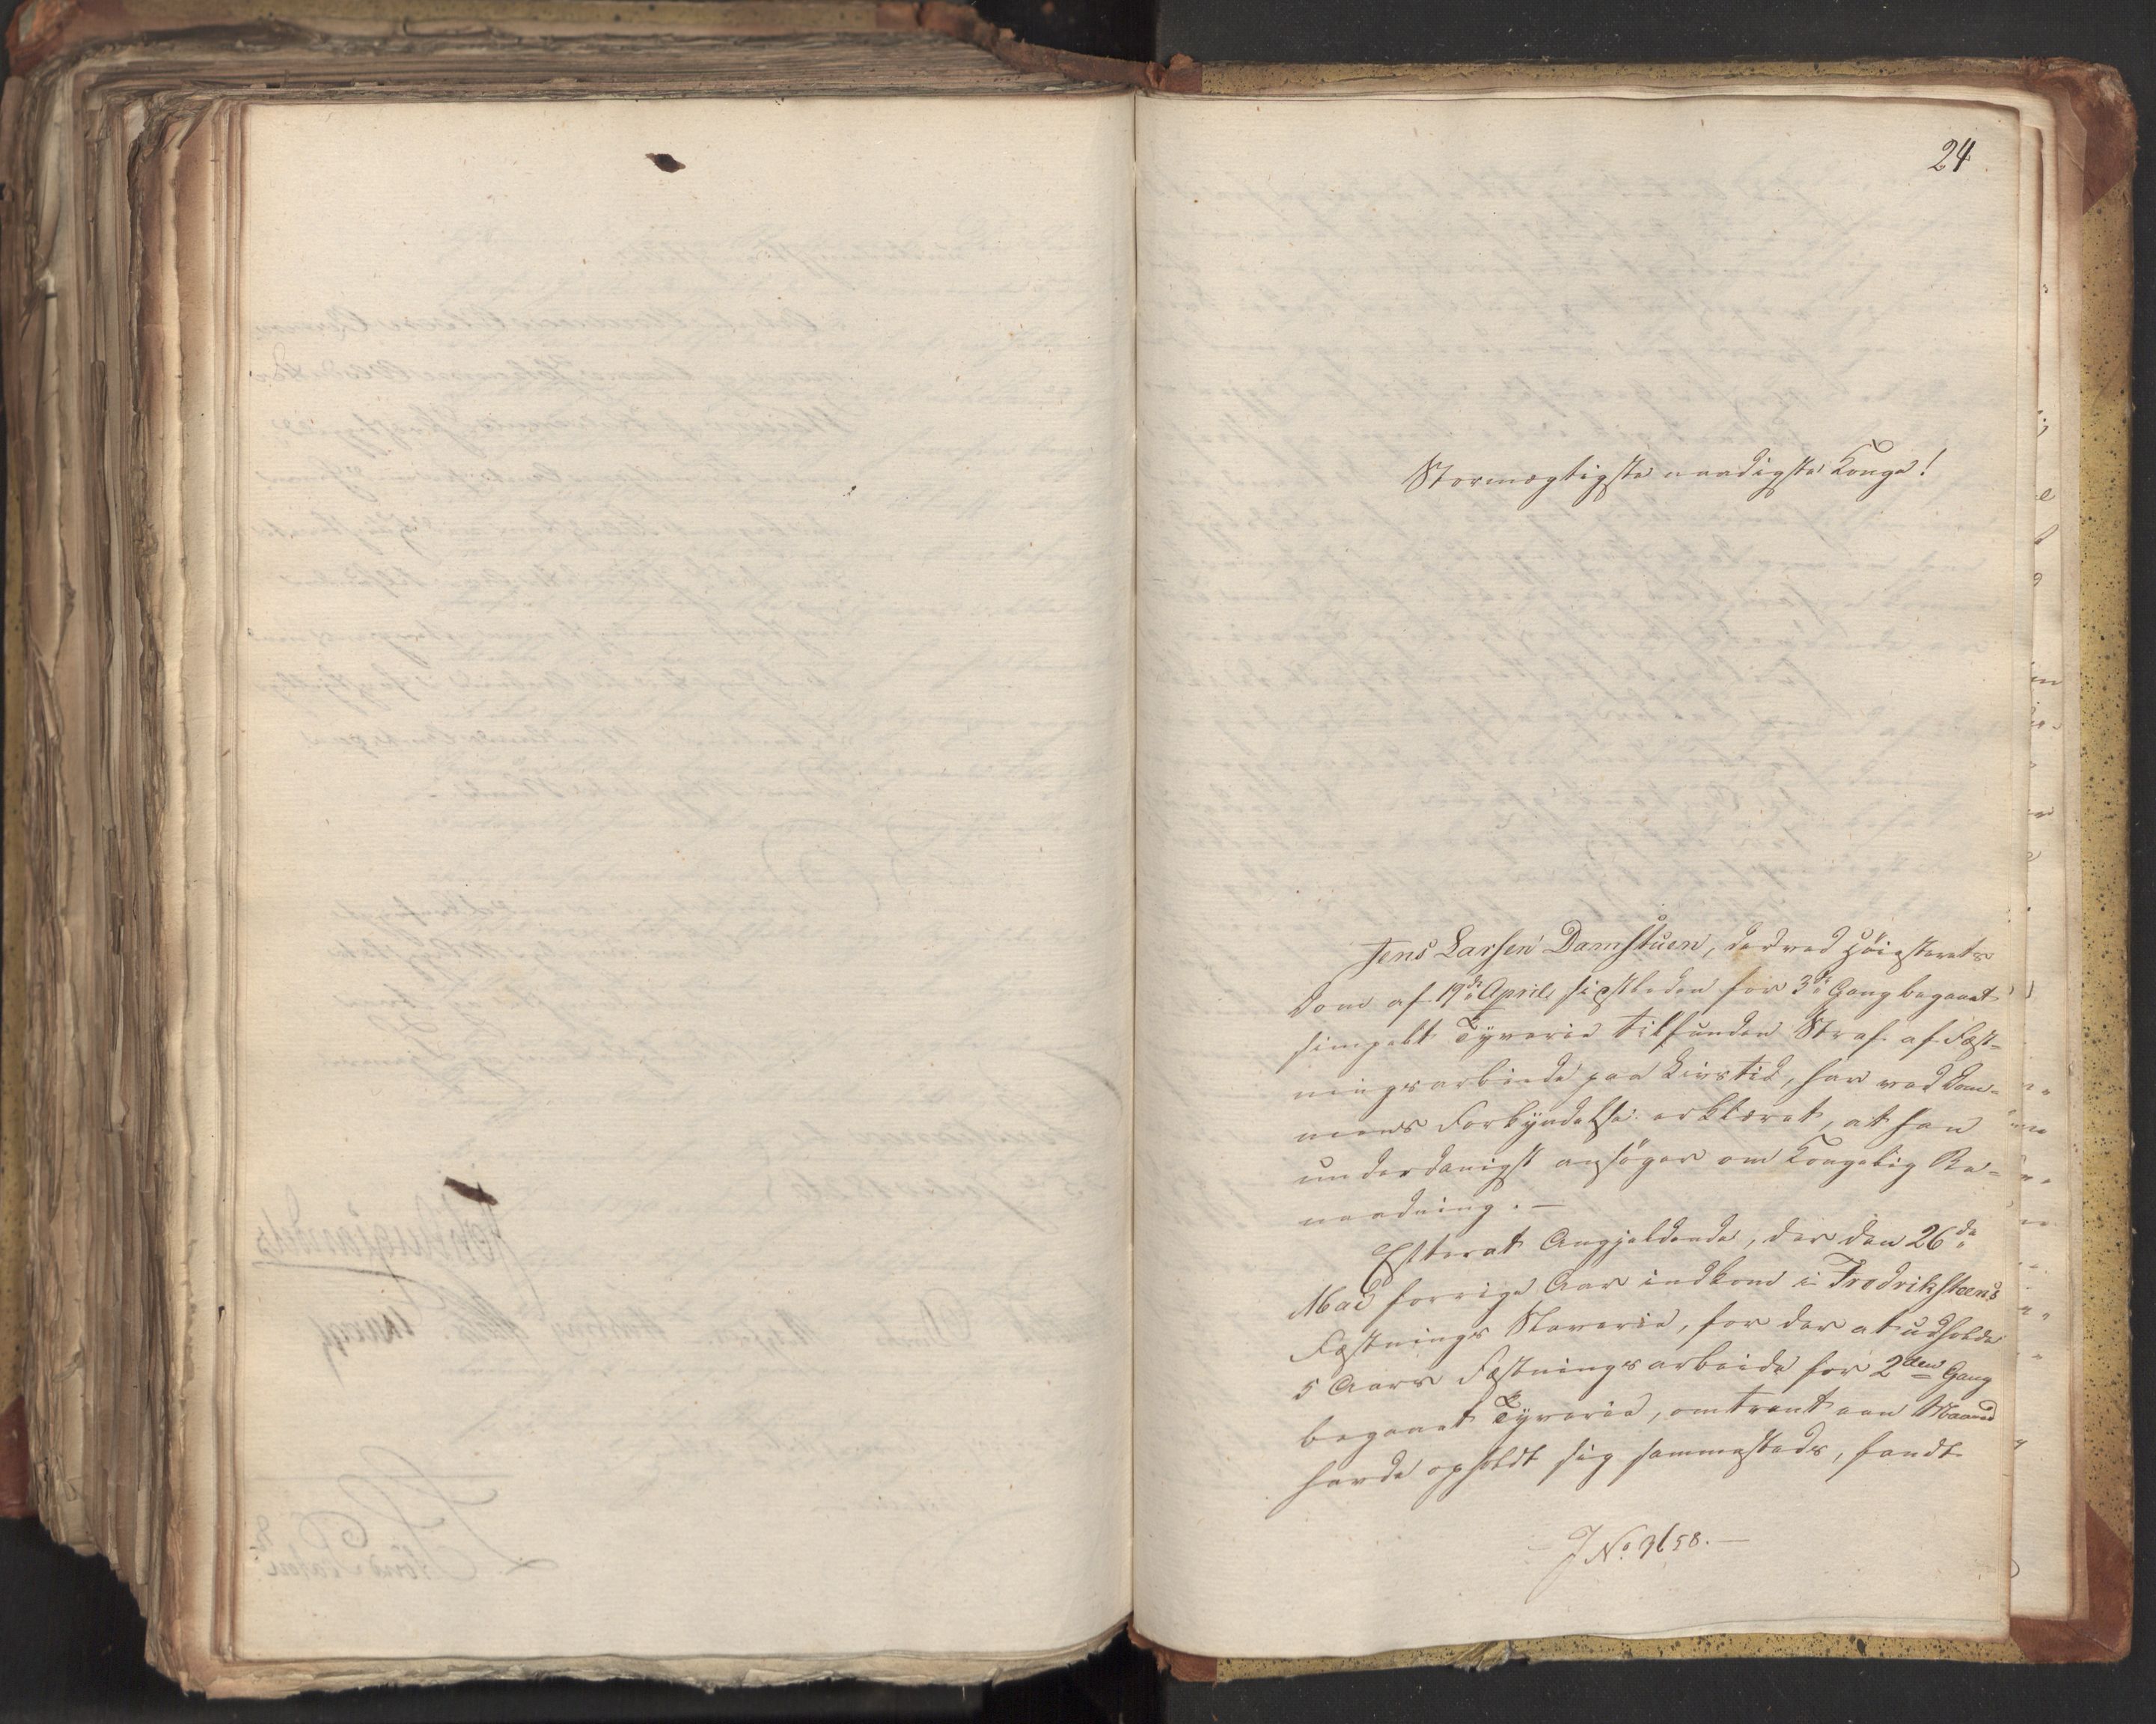 24
Stormægtigste naadigste Konge!
Jens Larsen Damstuen, der ved Höiesterets
Dom af 19de April sistleden for 3die Gang begaaet
simpelt Tyverie tilfunden Straf af Fæst-
ningsarbeide paa Livstid, har ved Dom-
mens Forkyndelse erklæret, at han
underdanigst ansöger om Kongelig Be-
naadning. —
Efterat Angjeldende, der den 26de
Mai forrige Aar indkom i Fredriksteens
Fæstnings Slaverie, for der at udholde
5 Aars Fæstningsarbeide for 2den Gang
begaaet Tyverie, omtrent een Maaned
havde opholdt sig sammesteds, fandt
J No. 3658. —